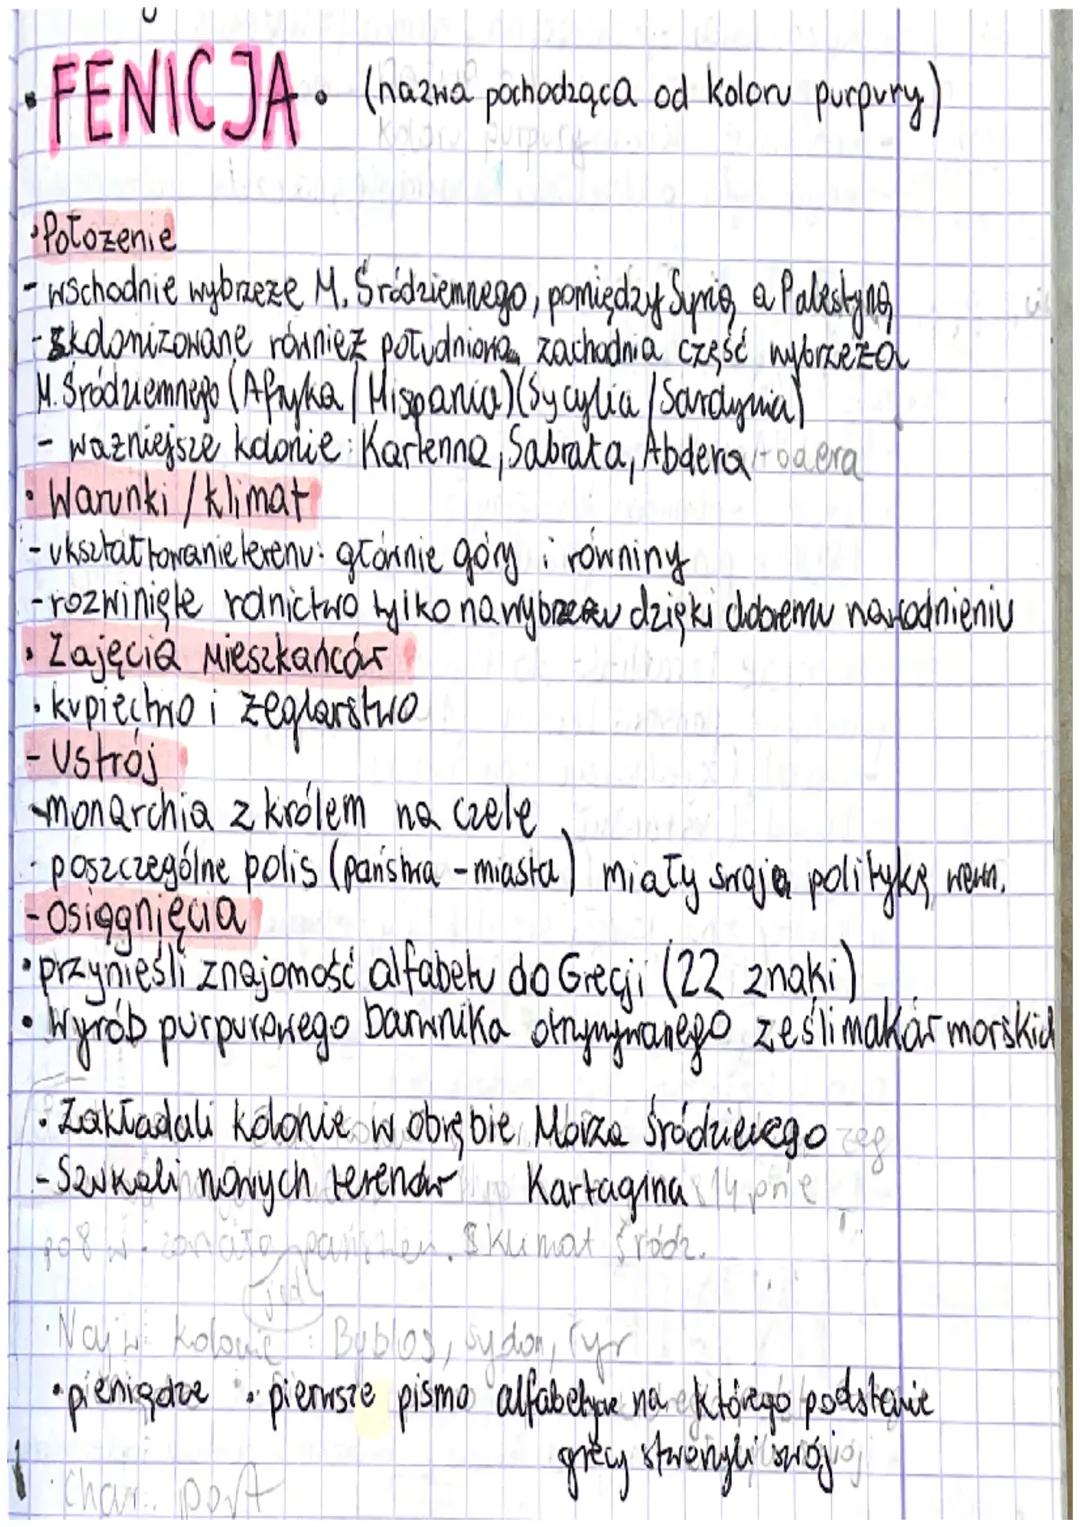 • FENICJA • (nazwa pochodząca od koloru purpury)
• Położenie
- wschodnie wybrzeże M. Śródziemnego, pomiędzy Syrią a Palestyną
- skolonizowane również południowa zachodnia część wybrzeża
M. Śródziemnego (Afryka / Hispania) (Sycylia / Sardynia)
- ważniejsze kolonie: Kartenna, Sabrata, Abdera
• Warunki / klimat
- ukształtowanie terenu: głównie góry i równiny
- rozwinięte rolnictwo tylko na wybrzeżu dzięki dobremu nawodnieniu
• Zajęcia mieszkańców
• kupiectwo i żeglarstwo
- Ustrój
- monarchia z królem na czele
• poszczególne polis (państwa - miasta) miały swoją politykę wewn.
- Osiągnięcia
• przynieśli znajomość alfabetu do Grecji (22 znaki)
• Wyrób purpurowego barwnika otrzymywanego ze ślimaków morskich
• Zakładali kolonie w obrębie Morza Śródziemnego
- Szukali nowych terenów Kartagina 814 pne
po 8 w. klimat śródz.
• Najw kolonie: Byblos, Sydon, Tyr
• pieniądze • pierwsze pismo alfabetyczne na którego podstawie
grecy stworzyli swój